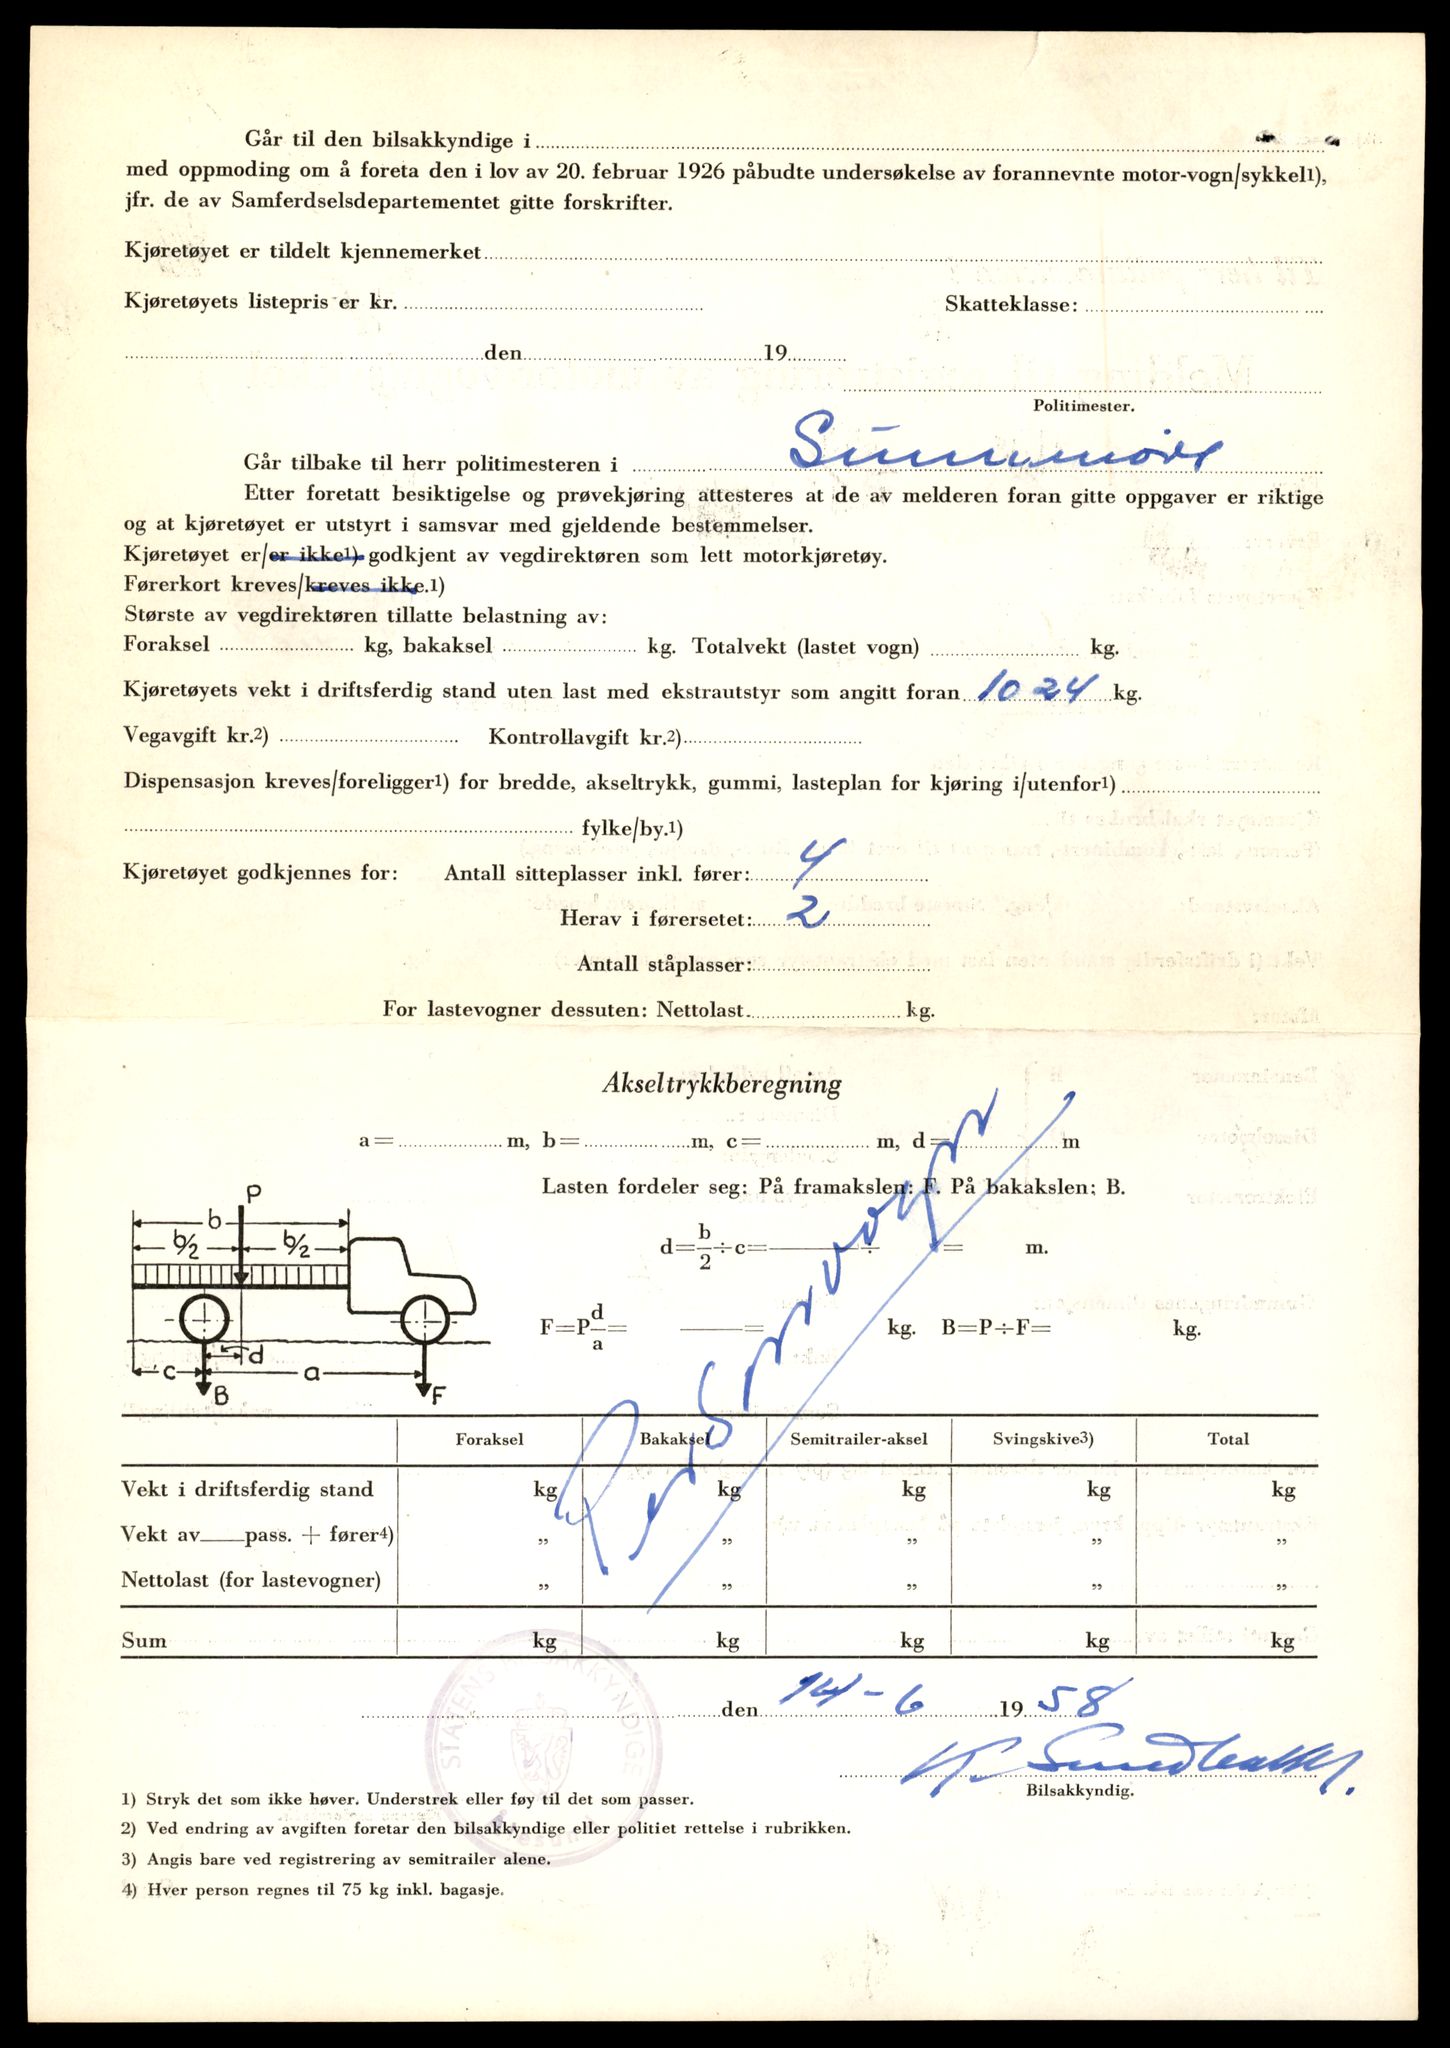 Går til den bilsakkyndige i
med oppmoding om å foreta den i lov av 20. februar 1926 påbudte undersøkelse av forannevnte motor-vogn/sykkel1),
jfr. de av Samferdselsdepartementet gitte forskrifter.
Kjøretøyet er tildelt kjennemerket
Kjøretøyets listepris er kr. Skatteklasse:
den 19
Politimester.
Går tilbake til herr politimesteren i Sunnmøre
Etter foretatt besiktigelse og prøvekjøring attesteres at de av melderen foran gitte oppgaver er riktige
og at kjøretøyet er utstyrt i samsvar med gjeldende bestemmelser.
Kjøretøyet er/er ikke1) godkjent av vegdirektøren som lett motorkjøretøy.
Førerkort kreves/kreves ikke.1)
Største av vegdirektøren tillatte belastning av:
Foraksel kg, bakaksel kg. Totalvekt (lastet vogn) kg.
Kjøretøyets vekt i driftsferdig stand uten last med ekstrautstyr som angitt foran 1024 kg.
Vegavgift kr.2) Kontrollavgift kr.2)
Dispensasjon kreves/foreligger1) for bredde, akseltrykk, gummi, lasteplan for kjøring i/utenfor1)
fylke/by.1)
Kjøretøyet godkjennes for: Antall sitteplasser inkl. fører: 4
Herav i førersetet: 2
Antall ståplasser:
For lastevogner dessuten: Nettolast kg.
Akseltrykkberegning
a= m, b= m, c= m, d= m
Lasten fordeler seg: På framakslen: F. På bakakslen: B.
d=b/2÷c= ÷ = m.
F=P d/a= = kg. B=P÷F= kg.
P
b
b/2 b/2
d
c a
B F
Personvogn
Foraksel Bakaksel Semitrailer-aksel Svingskive3) Total
Vekt i driftsferdig stand kg kg kg kg kg
Vekt av pass. + fører4) „ „ „ „ „
Nettolast (for lastevogner) „ „ „ „ „
Sum kg kg kg kg kg
STATENS BILSAKKYNDIGE
Ålesund
den 14-6 1958
Bilsakkyndig.
1) Stryk det som ikke høver. Understrek eller føy til det som passer.
2) Ved endring av avgiften foretar den bilsakkyndige eller politiet rettelse i rubrikken.
3) Angis bare ved registrering av semitrailer alene.
4) Hver person regnes til 75 kg inkl. bagasje.